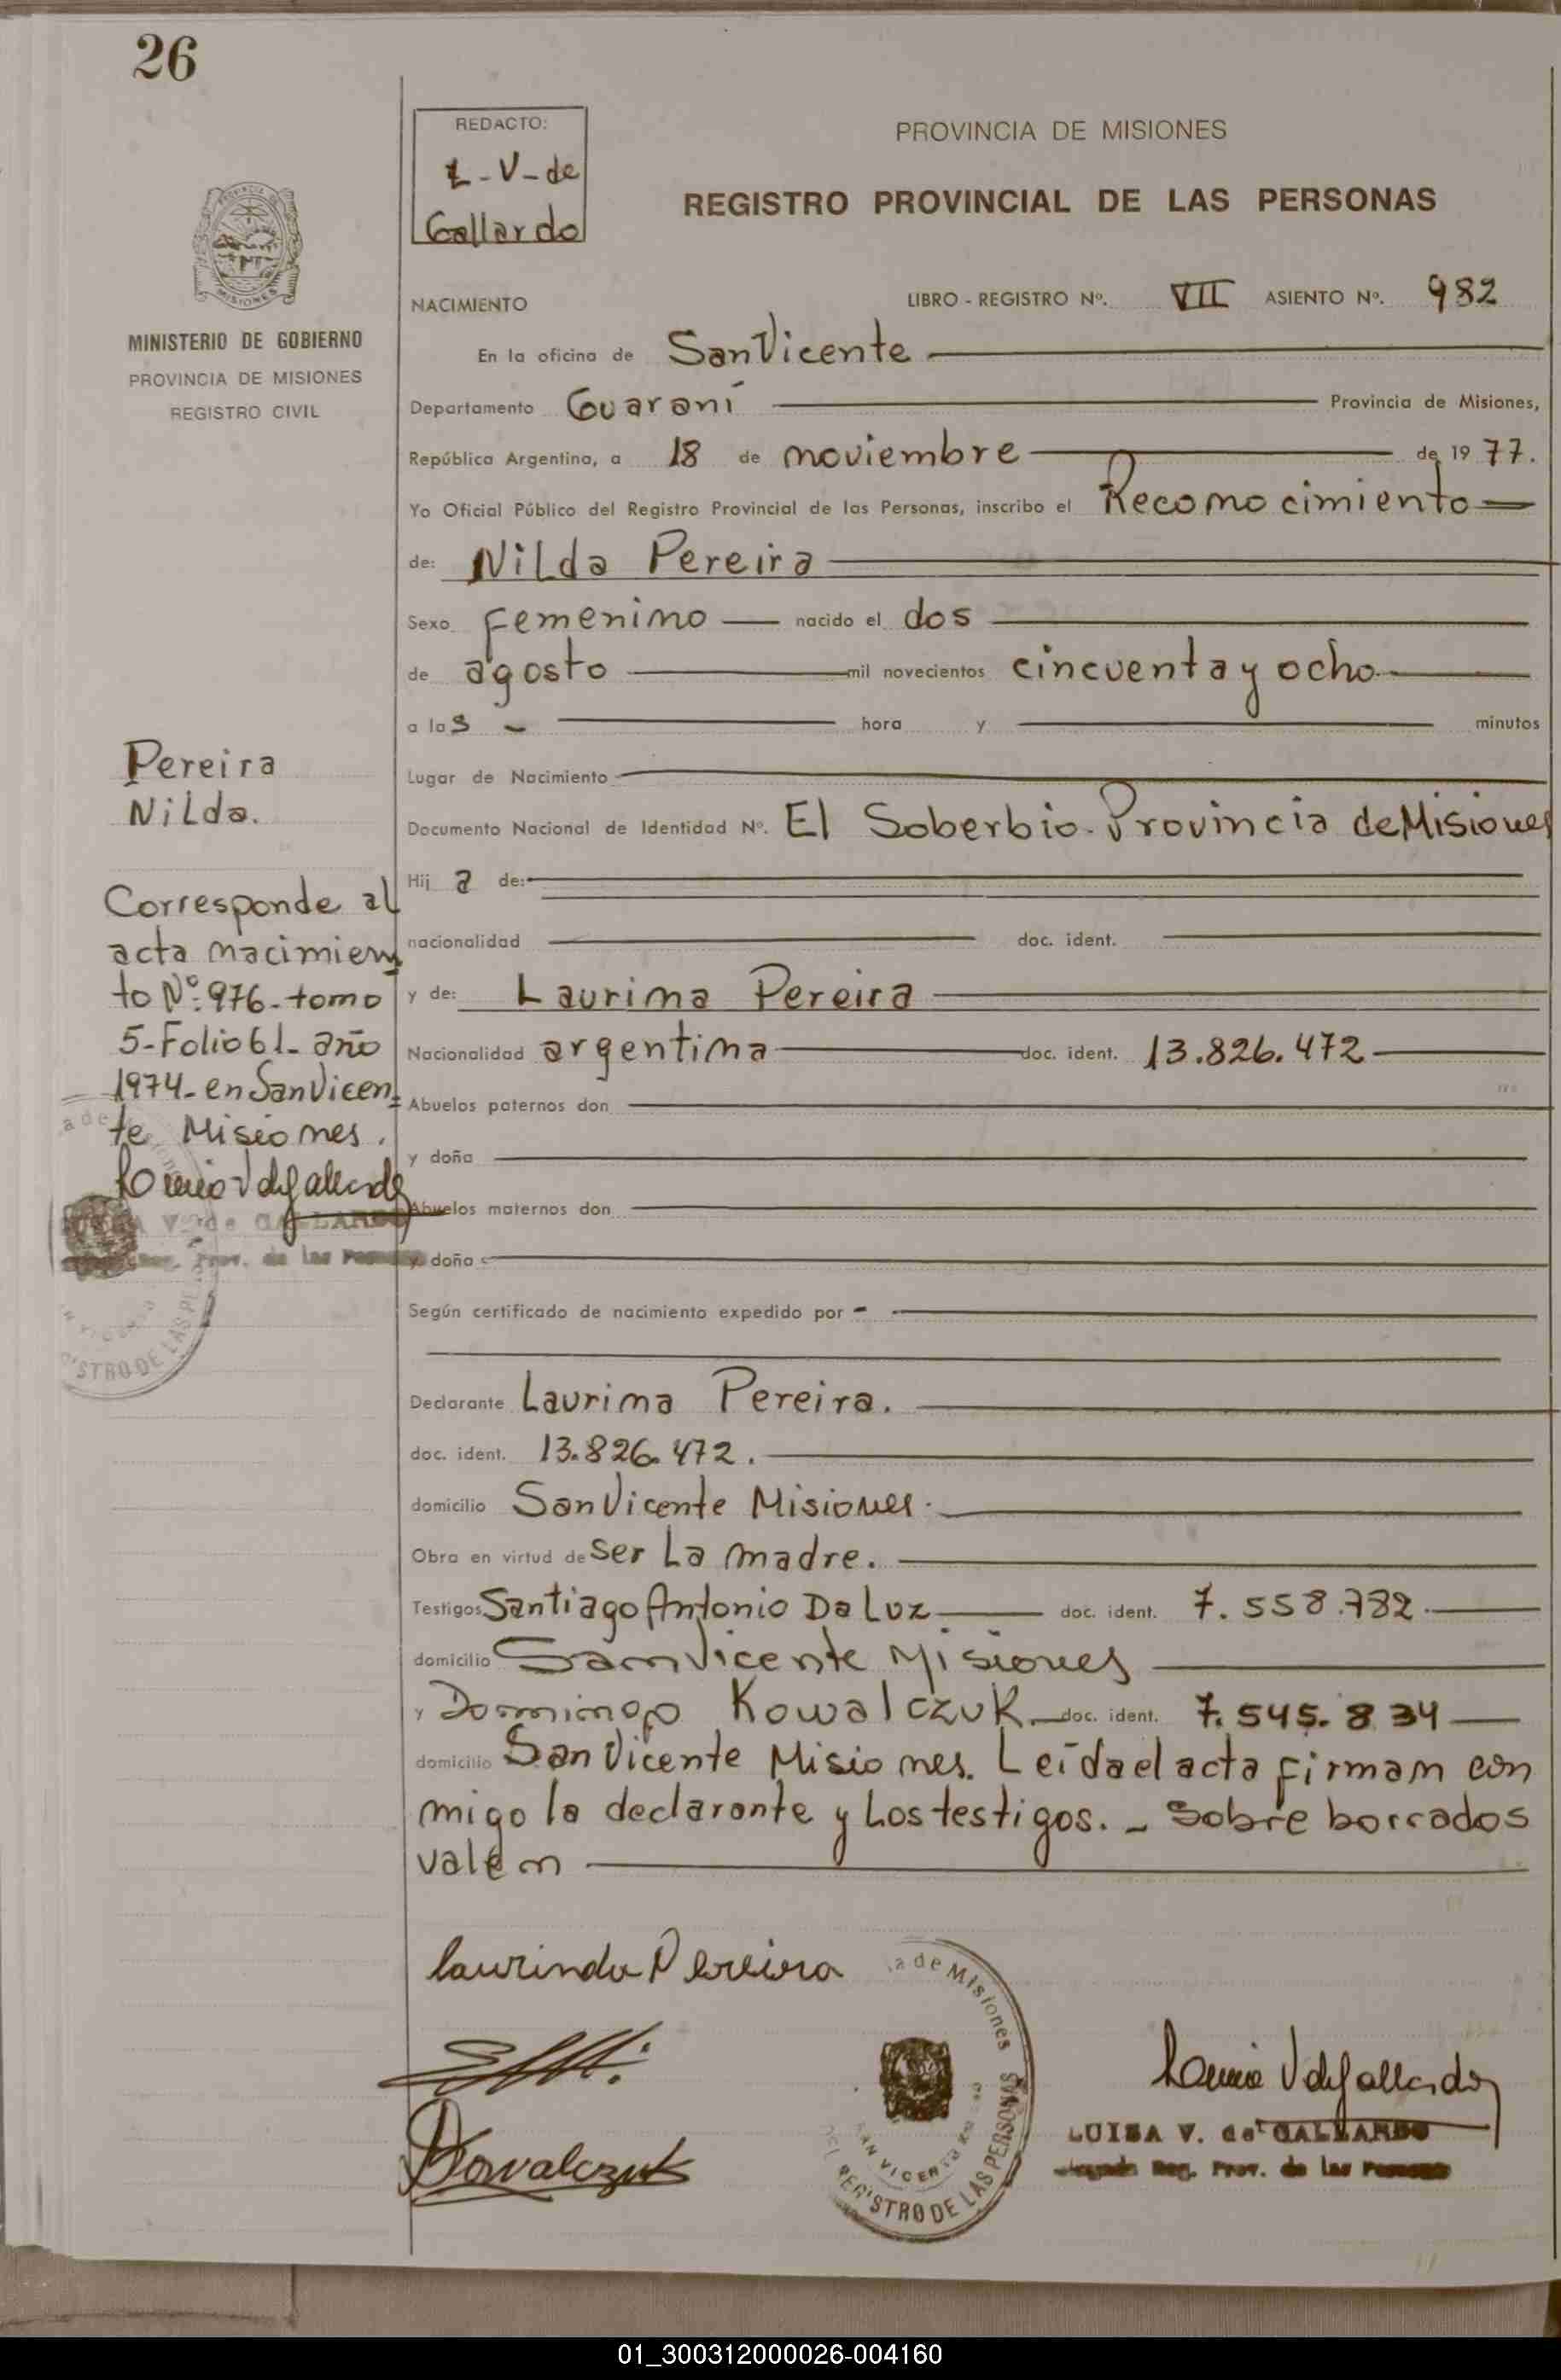 26
REDACTO:
L-V-de
Gallardo
PROVINCIA DE MISIONES
REGISTRO PROVINCIAL DE LAS PERSONAS
MISIONES
MINISTERIO DE GOBIERNO
PROVINCIA DE MISIONES
REGISTRO CIVIL
NACIMIENTO
LIBRO - REGISTRO Nº. VII ASIENTO Nº. 982
En la oficina de San Vicente
Departamento Guaraní Provincia de Misiones,
República Argentina, a 18 de noviembre de 19 77.
Yo Oficial Público del Registro Provincial de las Personas, inscribo el Reconocimiento
de: Nilda Pereira
Sexo femenino nacido el dos
de agosto mil novecientos cincuenta y ocho
a las - hora y minutos
Lugar de Nacimiento
Documento Nacional de Identidad Nº. El Soberbio. Provincia de Misiones
Hij a de:
nacionalidad doc. ident.
y de: Laurina Pereira
Nacionalidad argentina doc. ident. 13.826.472
Abuelos paternos don
y doña
Abuelos maternos don
y doña
Según certificado de nacimiento expedido por -
Declarante Laurina Pereira.
doc. ident. 13.826.472.
domicilio San Vicente Misiones.
Obra en virtud de ser La madre.
Testigos Santiago Antonio Da Luz doc. ident. 7.558.782
domicilio San Vicente Misiones
y Domingo Kowalczuk doc. ident. 7.545.834
domicilio San Vicente Misiones. Leída el acta firman con
migo la declarante y Los testigos. - Sobre borrados
valen
Pereira
Nilda.
Corresponde al
acta nacimien
to Nº: 976-tomo
5-Folio 61- año
1974- en San Vicen=
te Misiones.
Luisa V de Gallardo
V. de GALLARDO
Reg. Prov. de las Personas
REGISTRO DE LAS PE
laurinda Pereira
Kowalczuk
a de Misiones
SAN VICENTE
DEL REGISTRO DE LAS PERSONAS
Luisa V de Gallardo
LUISA V. de GALLARDO
Reg. Prov. de las Personas
01_300312000026-004160